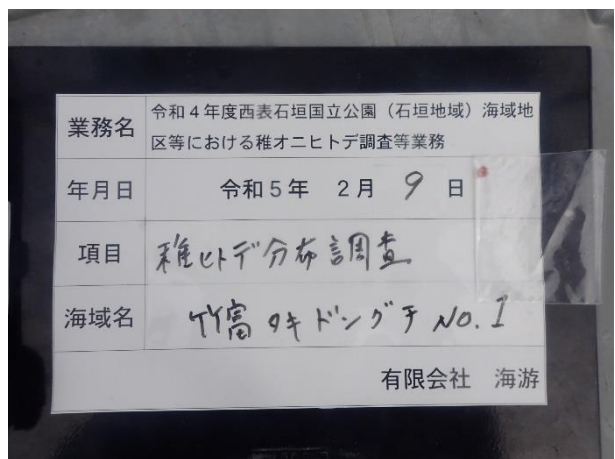 業務名 令和4年度西表石垣国立公園（石垣地域）海域地
区等における稚オニヒトデ調査等業務
年月日 令和5年 2月 9日
項目 稚ヒトデ分布調査
海域名 竹富タキドングチ NO.1
有限会社 海游